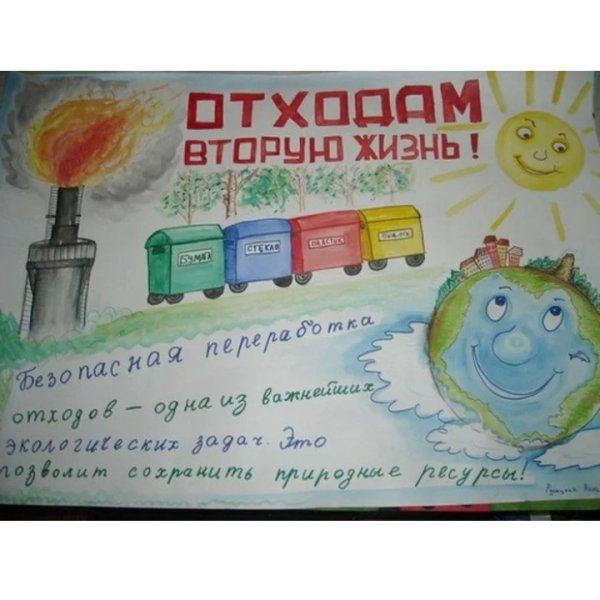 ОТХОДАМ
ВТОРУЮ ЖИЗНЬ!
БУМАГА
СТЕКЛО
ПЛАСТИК
Безопасная переработка
отходов – одна из важнейших
экологических задач. Это
позволит сохранить природные ресурсы!